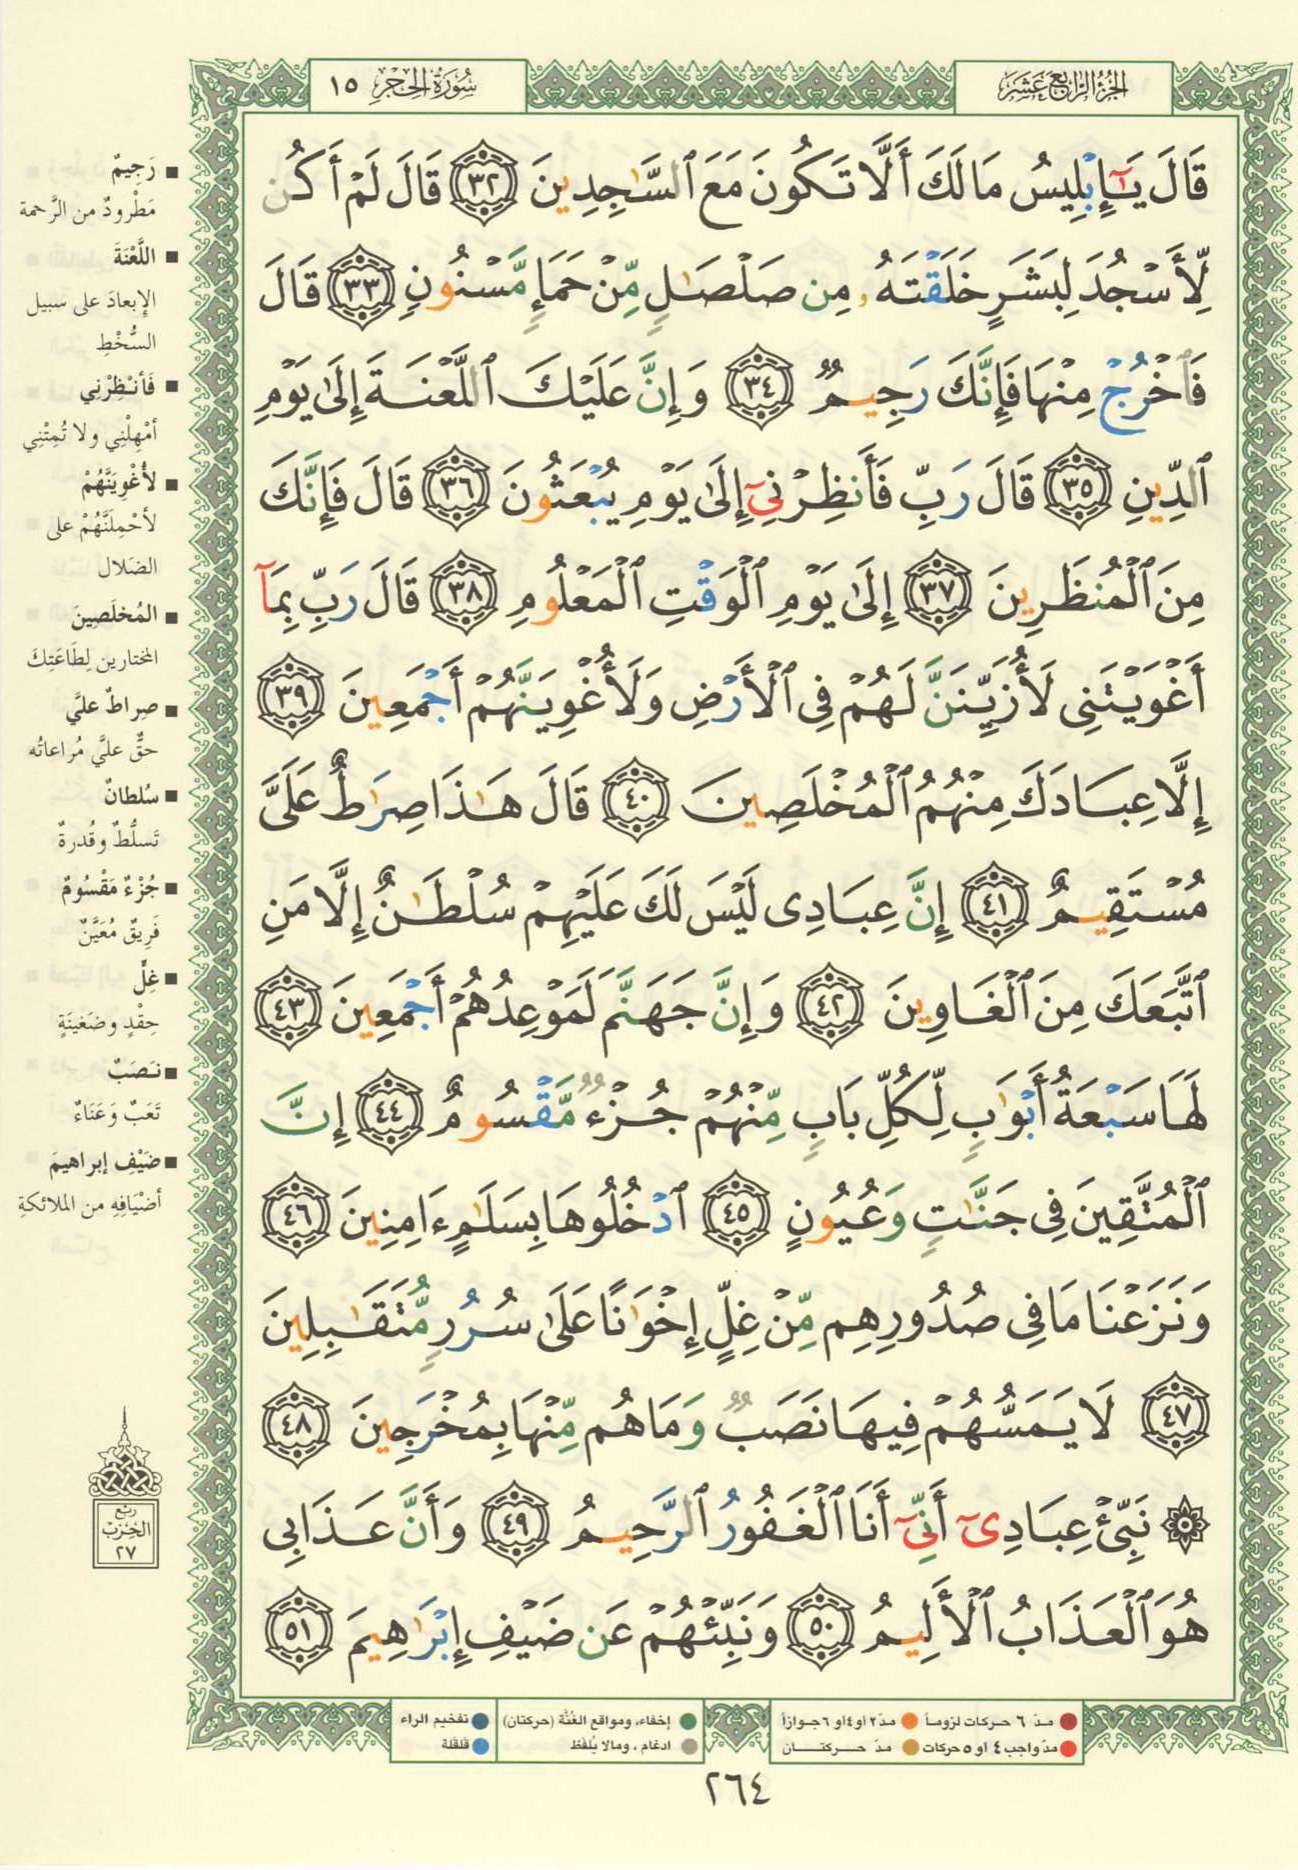 الجزء الرابع عشر
سورة الحجر ١٥
قَالَ يَـٰٓإِبْلِيسُ مَا لَكَ أَلَّا تَكُونَ مَعَ ٱلسَّـٰجِدِينَ ٣٢ قَالَ لَمْ أَكُن
لِّأَسْجُدَ لِبَشَرٍ خَلَقْتَهُۥ مِن صَلْصَـٰلٍ مِّنْ حَمَإٍ مَّسْنُونٍ ٣٣ قَالَ
فَٱخْرُجْ مِنْهَا فَإِنَّكَ رَجِيمٌ ٣٤ وَإِنَّ عَلَيْكَ ٱللَّعْنَةَ إِلَىٰ يَوْمِ
ٱلدِّينِ ٣٥ قَالَ رَبِّ فَأَنظِرْنِىٓ إِلَىٰ يَوْمِ يُبْعَثُونَ ٣٦ قَالَ فَإِنَّكَ
مِنَ ٱلْمُنظَرِينَ ٣٧ إِلَىٰ يَوْمِ ٱلْوَقْتِ ٱلْمَعْلُومِ ٣٨ قَالَ رَبِّ بِمَآ
أَغْوَيْتَنِى لَأُزَيِّنَنَّ لَهُمْ فِى ٱلْأَرْضِ وَلَأُغْوِيَنَّهُمْ أَجْمَعِينَ ٣٩
إِلَّا عِبَادَكَ مِنْهُمُ ٱلْمُخْلَصِينَ ٤٠ قَالَ هَـٰذَا صِرَٰطٌ عَلَىَّ
مُسْتَقِيمٌ ٤١ إِنَّ عِبَادِى لَيْسَ لَكَ عَلَيْهِمْ سُلْطَـٰنٌ إِلَّا مَنِ
ٱتَّبَعَكَ مِنَ ٱلْغَاوِينَ ٤٢ وَإِنَّ جَهَنَّمَ لَمَوْعِدُهُمْ أَجْمَعِينَ ٤٣
لَهَا سَبْعَةُ أَبْوَٰبٍ لِّكُلِّ بَابٍ مِّنْهُمْ جُزْءٌ مَّقْسُومٌ ٤٤ إِنَّ
ٱلْمُتَّقِينَ فِى جَنَّـٰتٍ وَعُيُونٍ ٤٥ ٱدْخُلُوهَا بِسَلَـٰمٍ ءَامِنِينَ ٤٦
وَنَزَعْنَا مَا فِى صُدُورِهِم مِّنْ غِلٍّ إِخْوَٰنًا عَلَىٰ سُرُرٍ مُّتَقَـٰبِلِينَ
٤٧ لَا يَمَسُّهُمْ فِيهَا نَصَبٌ وَمَا هُم مِّنْهَا بِمُخْرَجِينَ ٤٨
۞ نَبِّئْ عِبَادِىٓ أَنِّىٓ أَنَا ٱلْغَفُورُ ٱلرَّحِيمُ ٤٩ وَأَنَّ عَذَابِى
هُوَ ٱلْعَذَابُ ٱلْأَلِيمُ ٥٠ وَنَبِّئْهُمْ عَن ضَيْفِ إِبْرَٰهِيمَ ٥١
■ رَجِيمٌ
مَطْرودٌ من الرَّحمة
■ اللَّعْنَةَ
الإبعادَ على سبيل
السُّخْطِ
■ فَأنْظِرْنِي
أمْهِلْنِي ولا تُمِتْنِي
■ لأُغْوِيَنَّهُمْ
لأحْمِلَنَّهُمْ على
الضلال
■ المُخلَصِينَ
المختارين لِطَاعَتِكَ
■ صِراطٌ عليَّ
حقٌّ عليَّ مُراعاتُه
■ سُلطانٌ
تَسلُّطٌ وقُدرةٌ
■ جُزْءٌ مَقْسُومٌ
فَرِيقٌ مُعَيَّنٌ
■ غِلٍّ
حِقْدٍ وضَغينَةٍ
■ نَصَبٌ
تَعَبٌ وَعَنَاءٌ
■ ضَيْفِ إبراهيمَ
أضْيَافِهِ من الملائكةِ
ربع
الحزب
٢٧
مدّ ٦ حركات لزوماً
مدّ ٢ أو ٤ أو ٦ جوازاً
إخفاء، ومواقع الغُنَّة (حركتان)
تفخيم الراء
مدّ واجب ٤ أو ٥ حركات
مدّ حركتان
ادغام ، وما لا يُلفَظ
قلقلة
٢٦٤